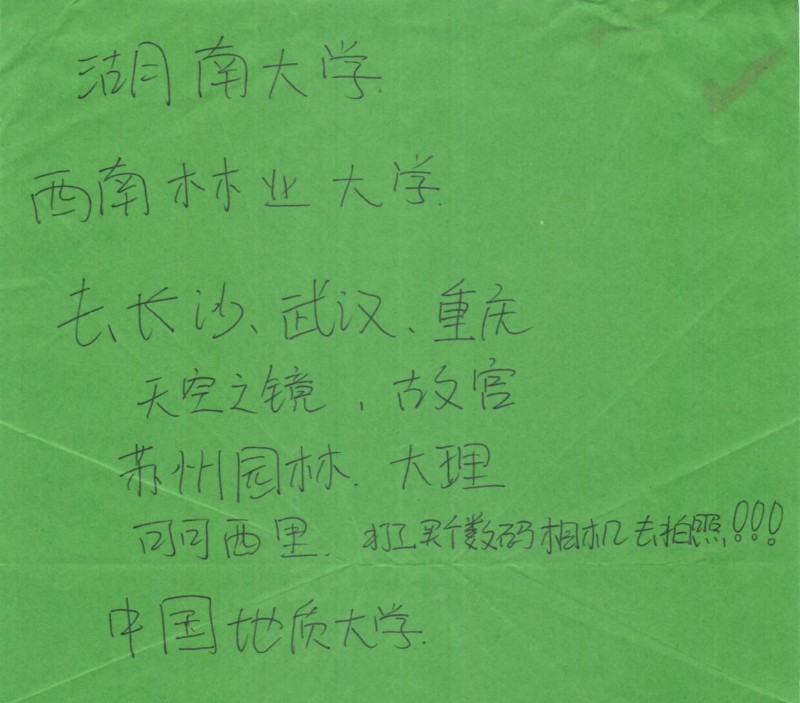 湖南大学.
西南林业大学.
去长沙、武汉、重庆
天空之镜，故宫
苏州园林. 大理
可可西里. 买个数码相机去拍照!!!
中国地质大学.